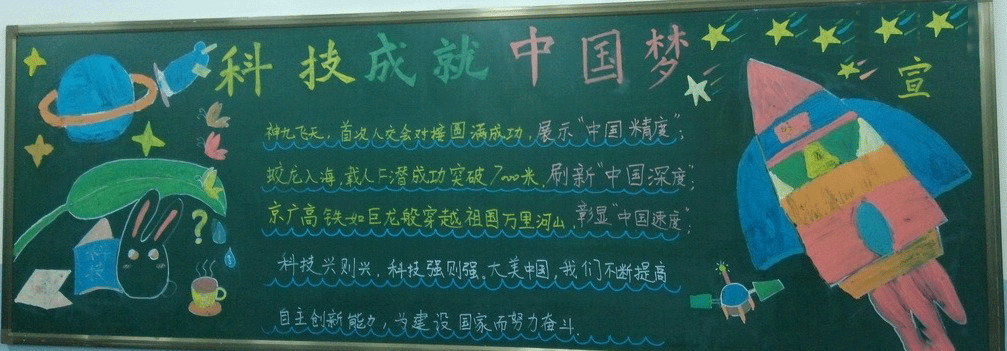 科技成就中国梦
宣
神九飞天，首次人交会对接圆满成功，展示"中国精度"；
蛟龙入海，载人下潜成功突破7000米，刷新"中国深度"；
京广高铁如巨龙般穿越祖国万里河山，彰显"中国速度"；
科技兴则兴，科技强则强。大美中国，我们不断提高
自主创新能力，为建设国家而努力奋斗.
科技